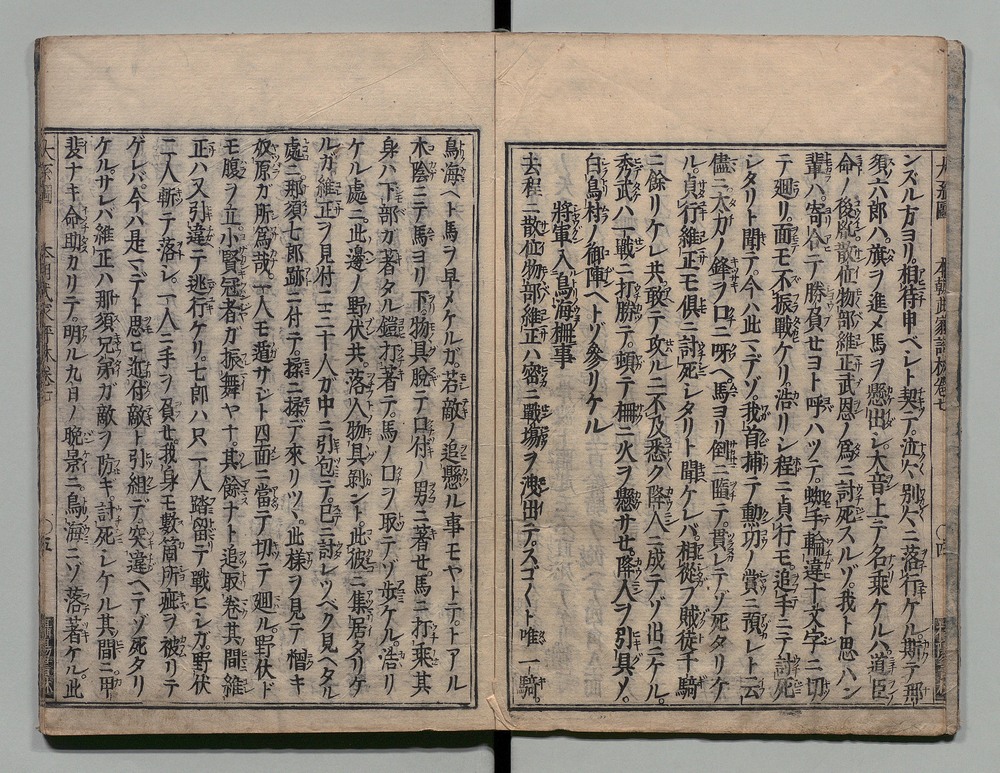 ンズル方ヨリ相待申ベシト契テ泣々別々ニ落行ケル斯テ那
須六郎ハ旗ヲ進メ馬ヲ懸出シ大音上テ名乗ケルハ道臣
命ノ後胤散位物部維正武恩ノ爲ニ討死スルゾ我ト思ハン
輩ハ寄合テ勝負セヨト呼ハツテ蜘手輪違十文字ニ切
テ廻リ面モ不振戰ケリ浩リシ程ニ貞行モ追手ニテ討死
シタリト聞テ今ハ此マデゾ我首捕テ勲功ノ賞ニ預レト云
儘ニ太刀ノ鋒ヲ口ニ呀ヘ馬ヨリ倒ニ墮テ貫レテゾ死タリケ
ル貞行維正モ俱ニ討死シタリト聞ケレバ相從フ賊徒千騎
ニ餘リケレ共敢テ攻ルニ不及悉ク降人ニ成テゾ出ニケル
秀武ハ一戰ニ打勝テ頓テ柵ニ火ヲ懸サセ降人ヲ引具ノ
白鳥村ノ御陣ヘトゾ參リケル
將軍入鳥海柵事
去程ニ散位物部維正ハ密ニ戰塲ヲ洩出テスゴ〱ト唯一騎
鳥海ヘト馬ヲ早メケルガ若敵ノ追懸ル事モヤトテトアル
木陰ニテ馬ヨリ下物具脱テ口付ノ男ニ著セ馬ニ打乗其
身ハ下部ガ著タル鎧打著テ馬ノ口ヲ取テゾ歩ケル浩リ
ケル處ニ此邊ノ野伏共落人物具剝ントテ此彼ニ集居タリケ
ルガ維正ヲ見付ニ三十人ガ中ニ引包テ已ニ討レツベク見ヘタル
處ニ那須七郎跡ニ付テ揉ニ揉デ來リツヽ此樣ヲ見テ憎キ
奴原ガ所爲哉一人モ遁サジト四面ニ當テ切テ廻ル野伏ド
モ腹ヲ立小賢冠者ガ振舞ヤナ其餘ナト追取巻其間維
正ハ又引違テ逃行ケリ七郎ハ只一人踏留テ戰ヒシガ野伏
二人斬テ落シ一人ニ手ヲ負セ我身モ數箇所疵ヲ被リテ
ゲレバ今ハ是マデト思ヒ近付敵ト引組デ突違ヘテゾ死タリ
ケルサレバ維正ハ那須兄弟ガ敵ヲ防ギ討死シケル其間ニ甲
斐ナキ命助カリテ明ル九日ノ晩景ニ鳥海ニゾ落著ケル此